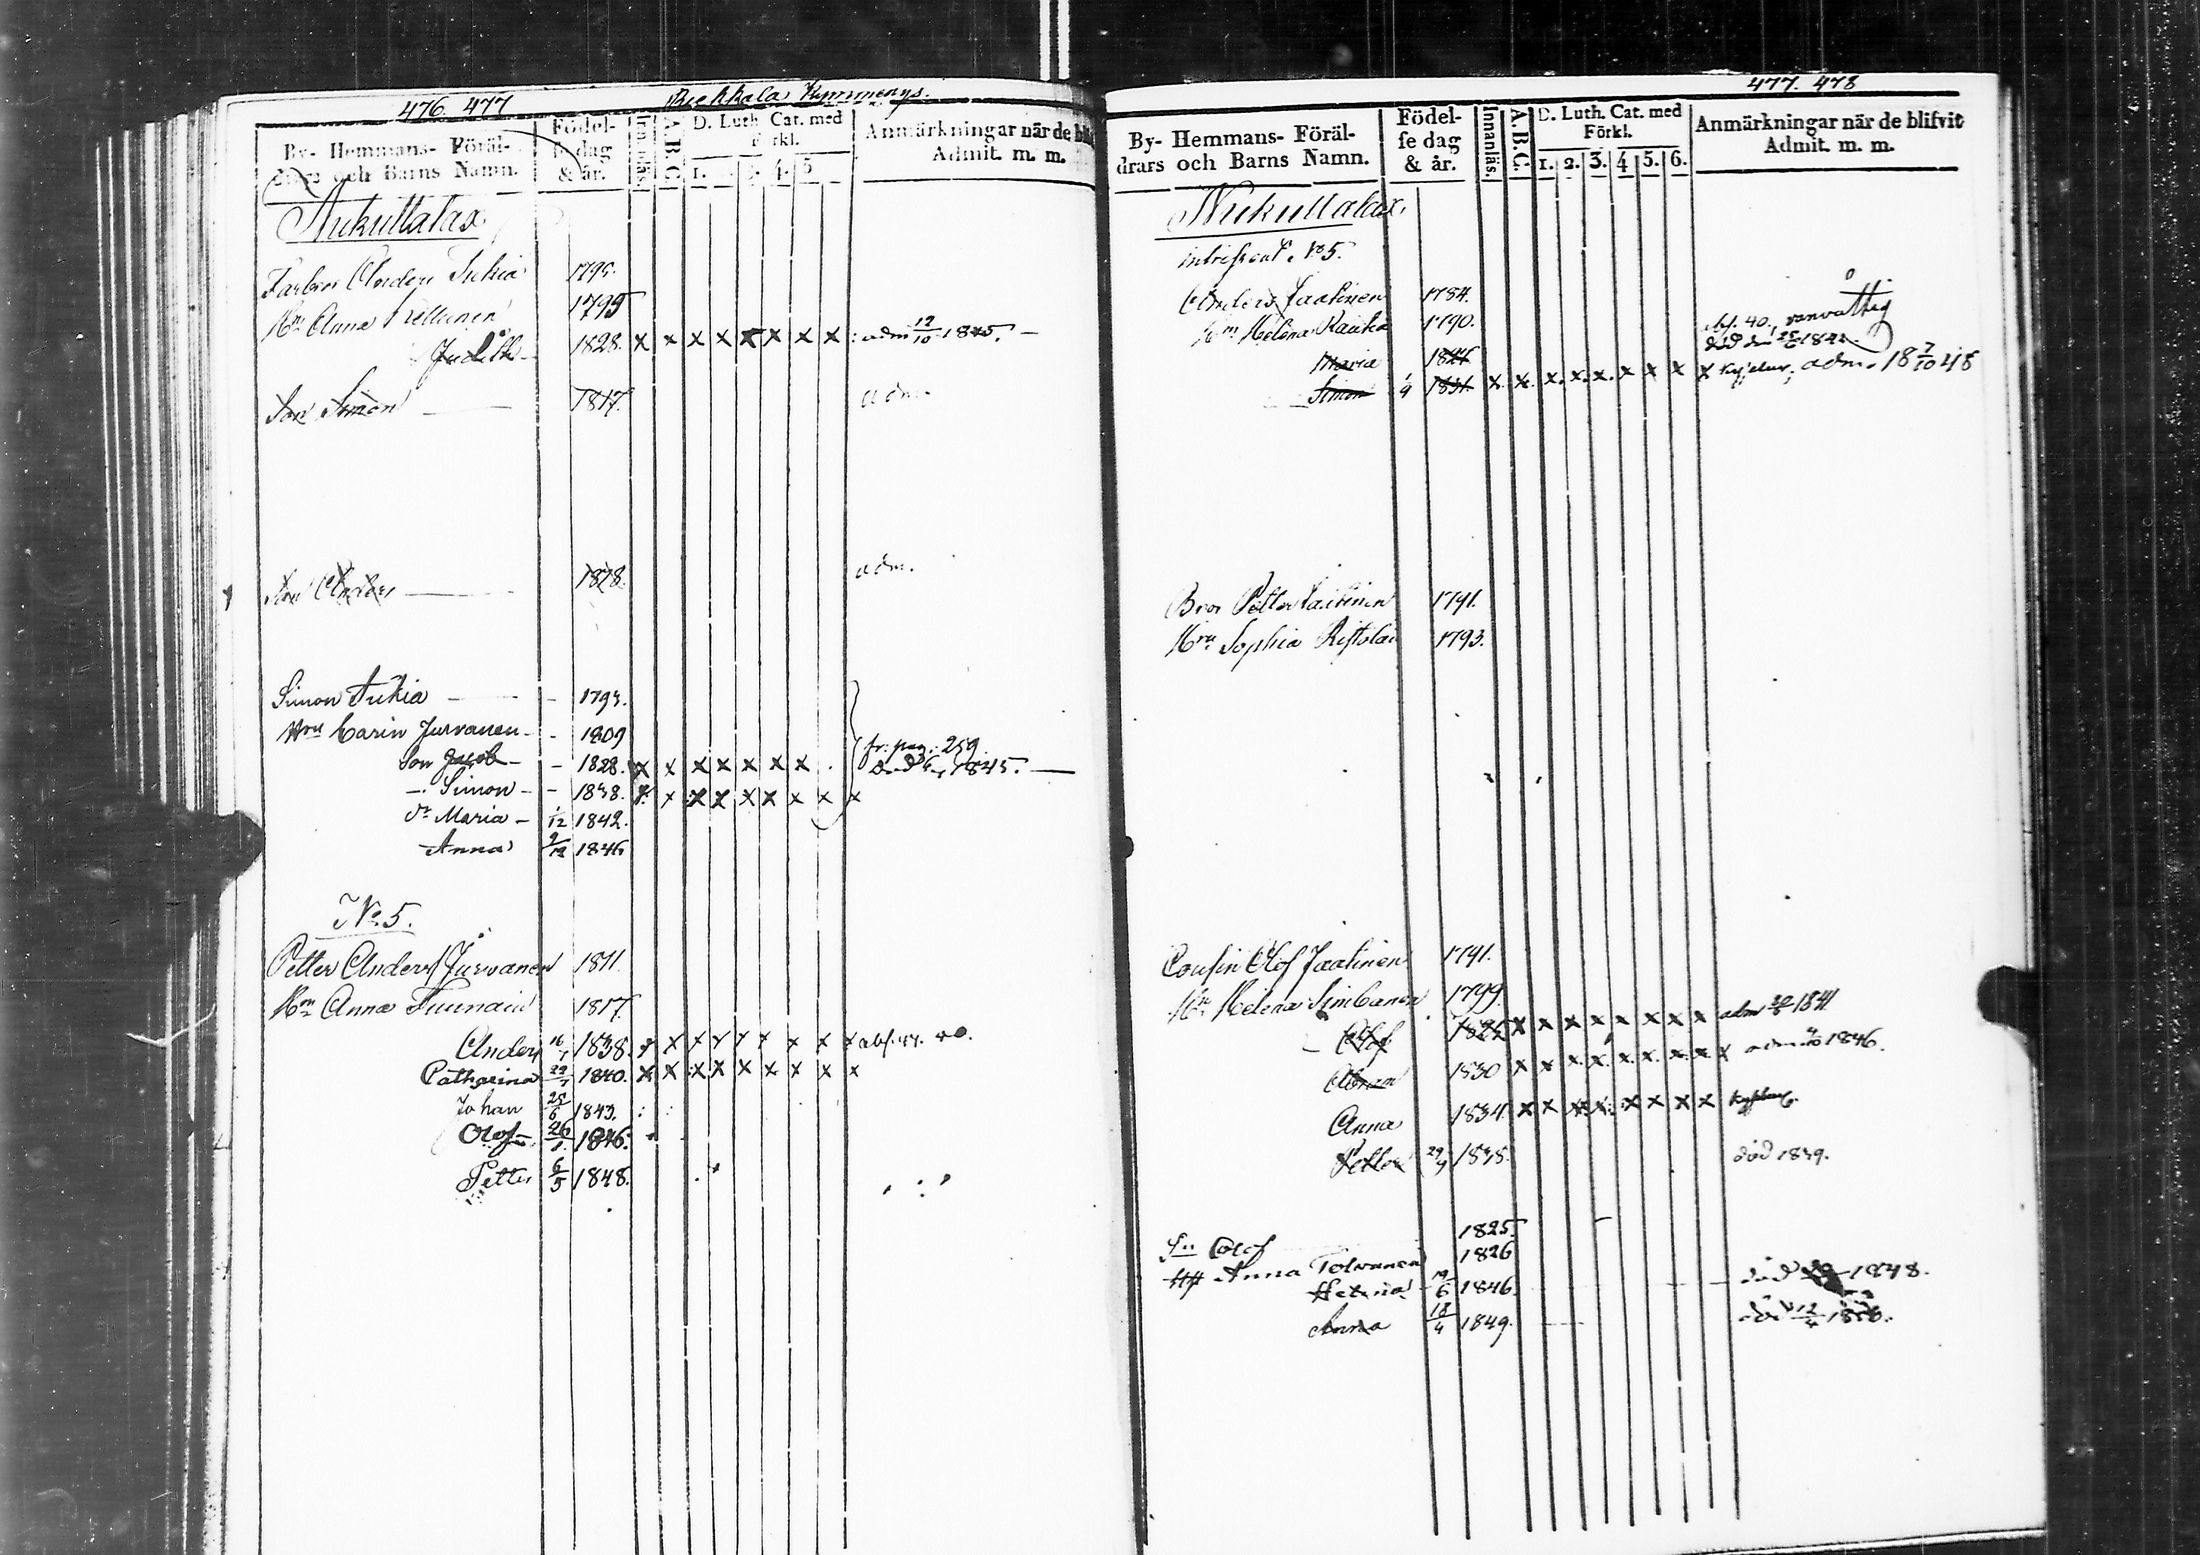 476. 477
Kymmenys.
By- Hemmans- Föräl-
drars och Barns Namn.
Födel-
se dag
& år.
Innanläs.
A.B.C.
D. Luth. Cat. med
Förkl.
1. 3. 4. 5
Anmärkningar när de bli
Admit. m. m.
Nukuttalax
Farbror Anders Tukia 1795.
Hru Anna 1795
Judith 1828. x x x x x x x x adm 12/10 1845.
Son Simon 1817. adm.
Son Anders 1828. adm.
Simon Tukia 1794.
Hru Carin Jurvanen 1809
Son Jacob 1828. x x x x x x x fr. pag. 259
död 1845.
Simon 1838. x x x x x x x x x
dr Maria 1/12 1842.
Anna 9/12 1846
No. 5.
Petter Anders Jurvanen 1811.
Hru Anna 1817.
Anders 16/1 1838. x x x x x x x x x abs. 44.
Catharina 1840. x x x x x x x x x
Johan 25/6 1843.
Olof 26/1 1846.
Petter 6/5 1848.
477. 478
By- Hemmans- Föräl-
drars och Barns Namn.
Födel-
se dag
& år.
Innanläs.
A.B.C.
D. Luth. Cat. med
Förkl.
1. 2. 3. 4 5. 6.
Anmärkningar när de blifvit
Admit. m. m.
Nukuttalax.
No 5.
Anders Jaatinen 1784.
Hru Helena Kauko 1790.
abs. 40., vanvåttig
Maria 1824 död den
Simon 1831. x x x x x x x x x adm. 18 7/10 48
Bror Petter Jaatinen 1791.
Hru Sophia Ristolai 1793.
Cousin Olof Jaatinen 1791.
Hru Helena 1799.
Olof 1825 x x x x x x x x adm 1841
1830 x x x x x x x x x adm 1846.
Anna 1834. x x x x x x x x
Petter 1838. död 1839.
Sn Olof 1825.
Anna Tolvanen 1826
Helena 19/6 1846. död 1848.
Anna 18/4 1849. död